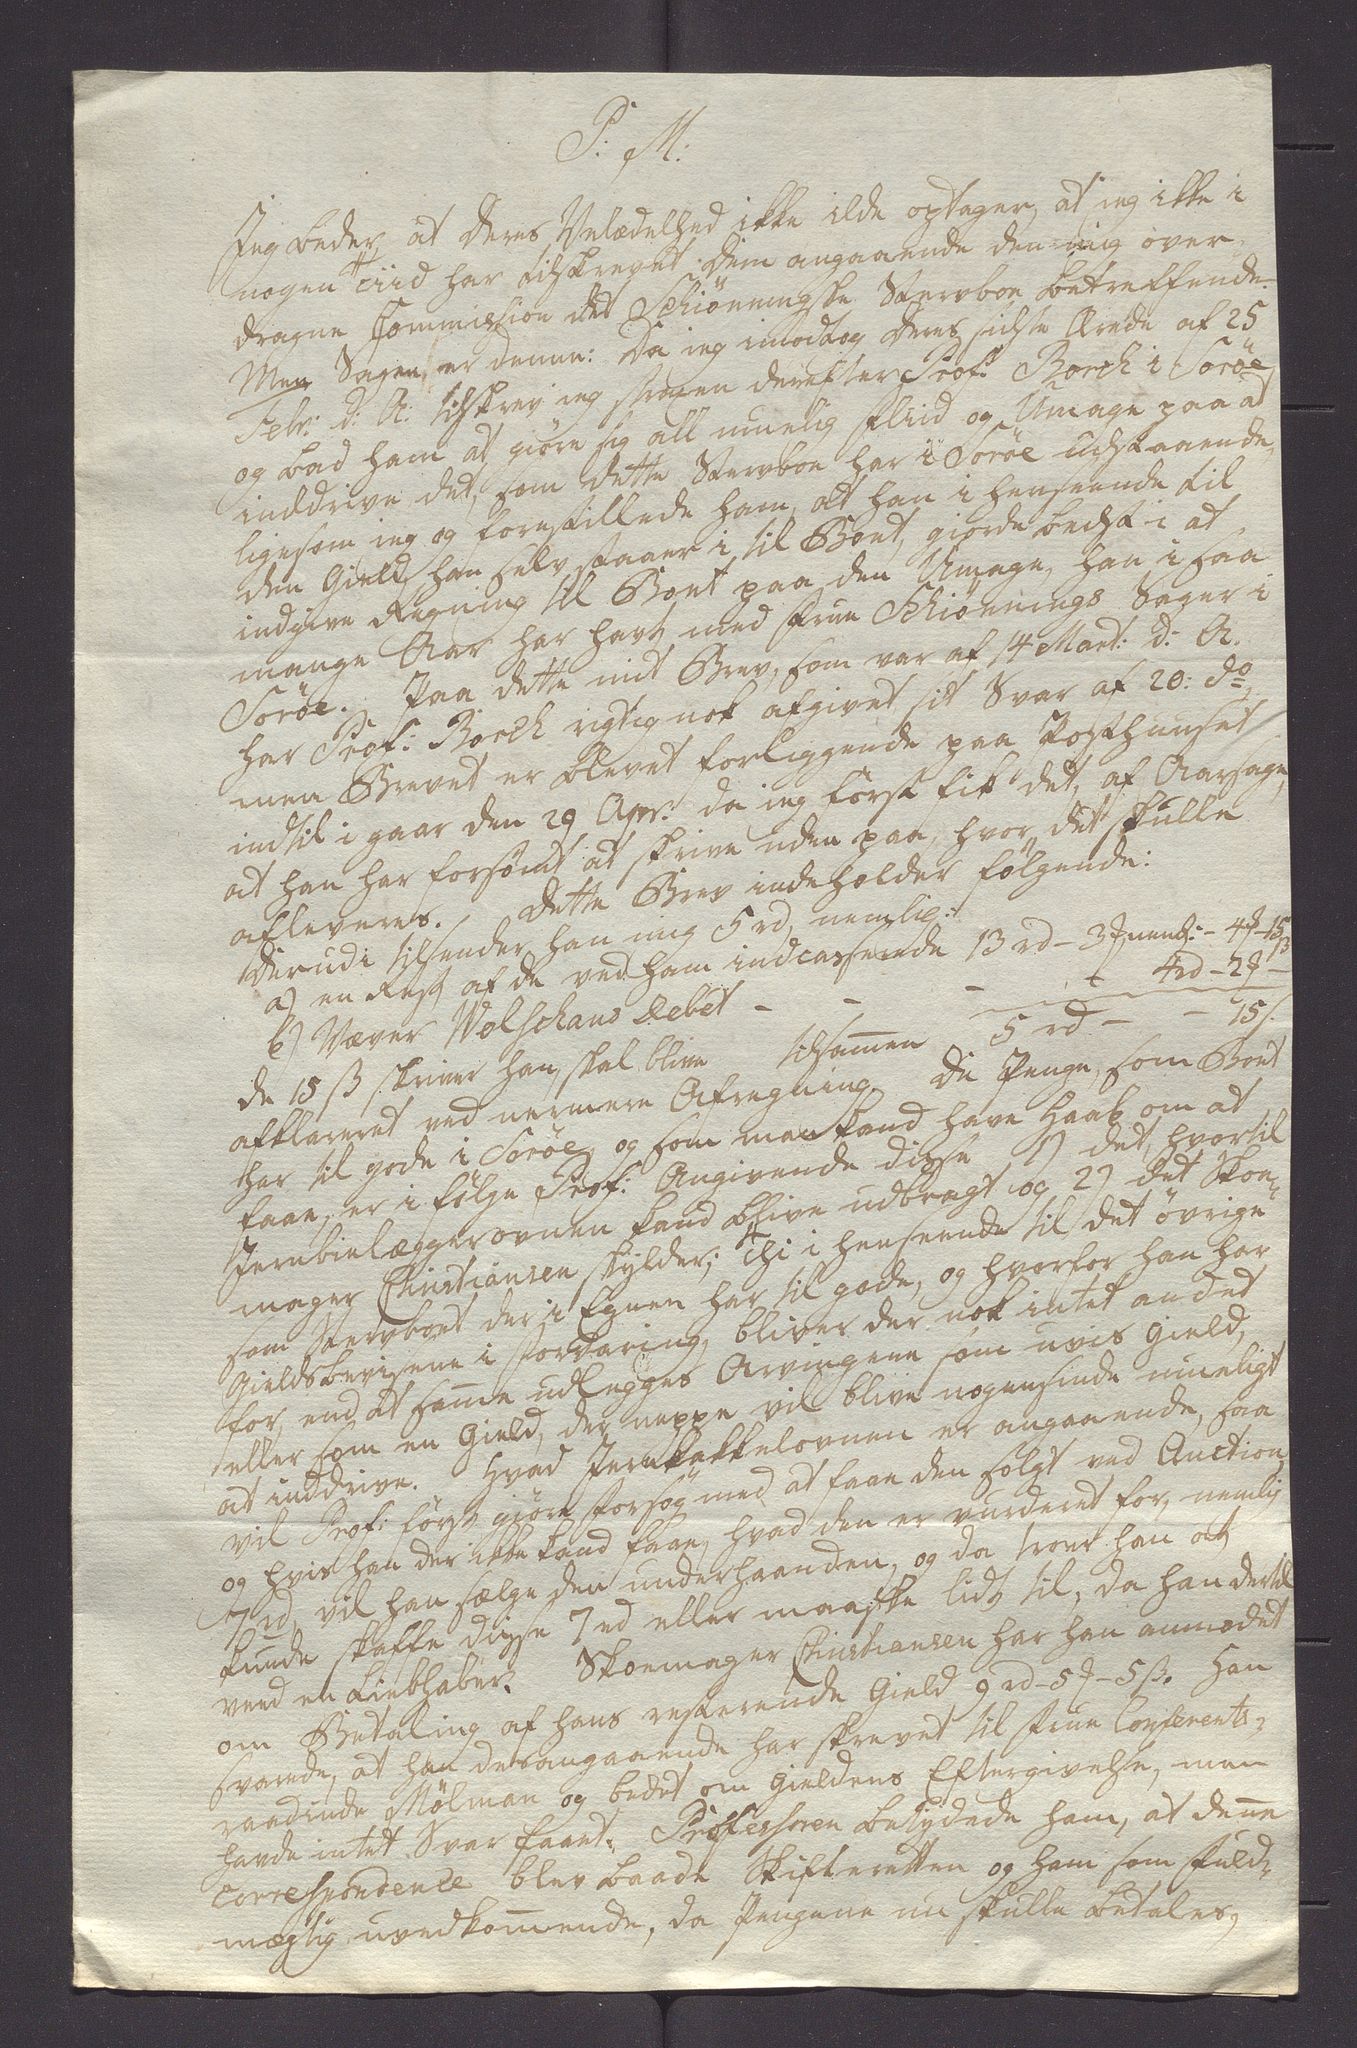 P: M:
Jeg beder, at Deres Velædelhed ikke ilde optager, at jeg ikke i
nogen Tiid har tilskrevet Dem angaaende den mig over-
dragne Commission det Schiønningske Sterboe betreffende.
Men Sagen er denne: Da jeg imodtog Deres sidste Ærede af 25
Febr: d: A: tilskrev jeg straxen derefter Prof: Borch i Sorøe,
og bad ham at giøre sig all muelig Fliid og Umage paa at
inddrive det, som dette Sterboe har i Sorøe udstaaende,
ligesom jeg og forestillede ham, at han i henseende til
den Gield, han selv staaer i til Boet, giorde bedst i at
indgive Regning til Boet paa den Umage, han i saa
mange Aar har havt med Frue Schiønnings Sager i
Sorøe. Paa dette mit Brev, som var af 14 Mart: d: A.
har Prof: Borch rigtig nok afgivet sit Svar af 20: do,
men Brevet er blevet forliggende paa Posthuuset
indtil i gaar den 29 Apr: da jeg først fik det, af Aarsage,
at han har forsømt at skrive uden paa, hvor det skulle
afleveres. Dette Brev indeholder følgende:
Derudi tilsender han mig 5 rd, nemlig:
a) en Rest af de ved ham indcasserede 13 rd - 3 ƒ nemb: - 4 ƒ - 15 ß
b) Væver Wolschans Debet - - - 4 rd - 2 ƒ -
de 15 ß skriver han, skal blive tilsammen 5 rd - - 15 ß.
afklareret ved nermere Afregning. De Penge, som Boet
har til gode i Sorøe, og som man kand have Haab om at
faae, er i følge Prof: Angivende disse 1) det, hvortil
Jernbielæggerovnen kand blive udbragt og 2) det Skoe-
mager Christiansen skylder; Thi i henseende til det øvrige
som Sterboet der i Egnen har til gode, og hvorfor han har
Gieldsbevisene i Forvaring, bliver der nok intet andet
for, end at samme udlegges Arvingene som uvis Gield,
eller som en Gield, der neppe vil blive nogensinde mueligt
at inddrive. Hvad Jernkakkelovnen er angaaende, saa
vil Prof: først giøre Forsøg med at faae den solgt ved Auction,
og hvis han der ikke kand faae, hvad den er vurderet for, nemlig
7 rd, vil han sælge den underhaanden, og da troer han at
kunde skaffe disse 7 rd eller maaske lidt til, da han dertil
veed en Liebhaber. Skoemager Christiansen har han anmodet
om Betaling af hans resterende Gield 9 rd - 5 ƒ - 5 ß. Han
svarede, at han desangaaende har skrevet til Frue Conferents-
raadinde Mølman og bedet om Gieldens Eftergivelse, men
havde intet Svar faaet. Professoren betydede ham, at denne
Correspondence blev baade Skifteretten og ham som Fuld-
mægtig uvedkommende, da Pengene nu skulle betales,